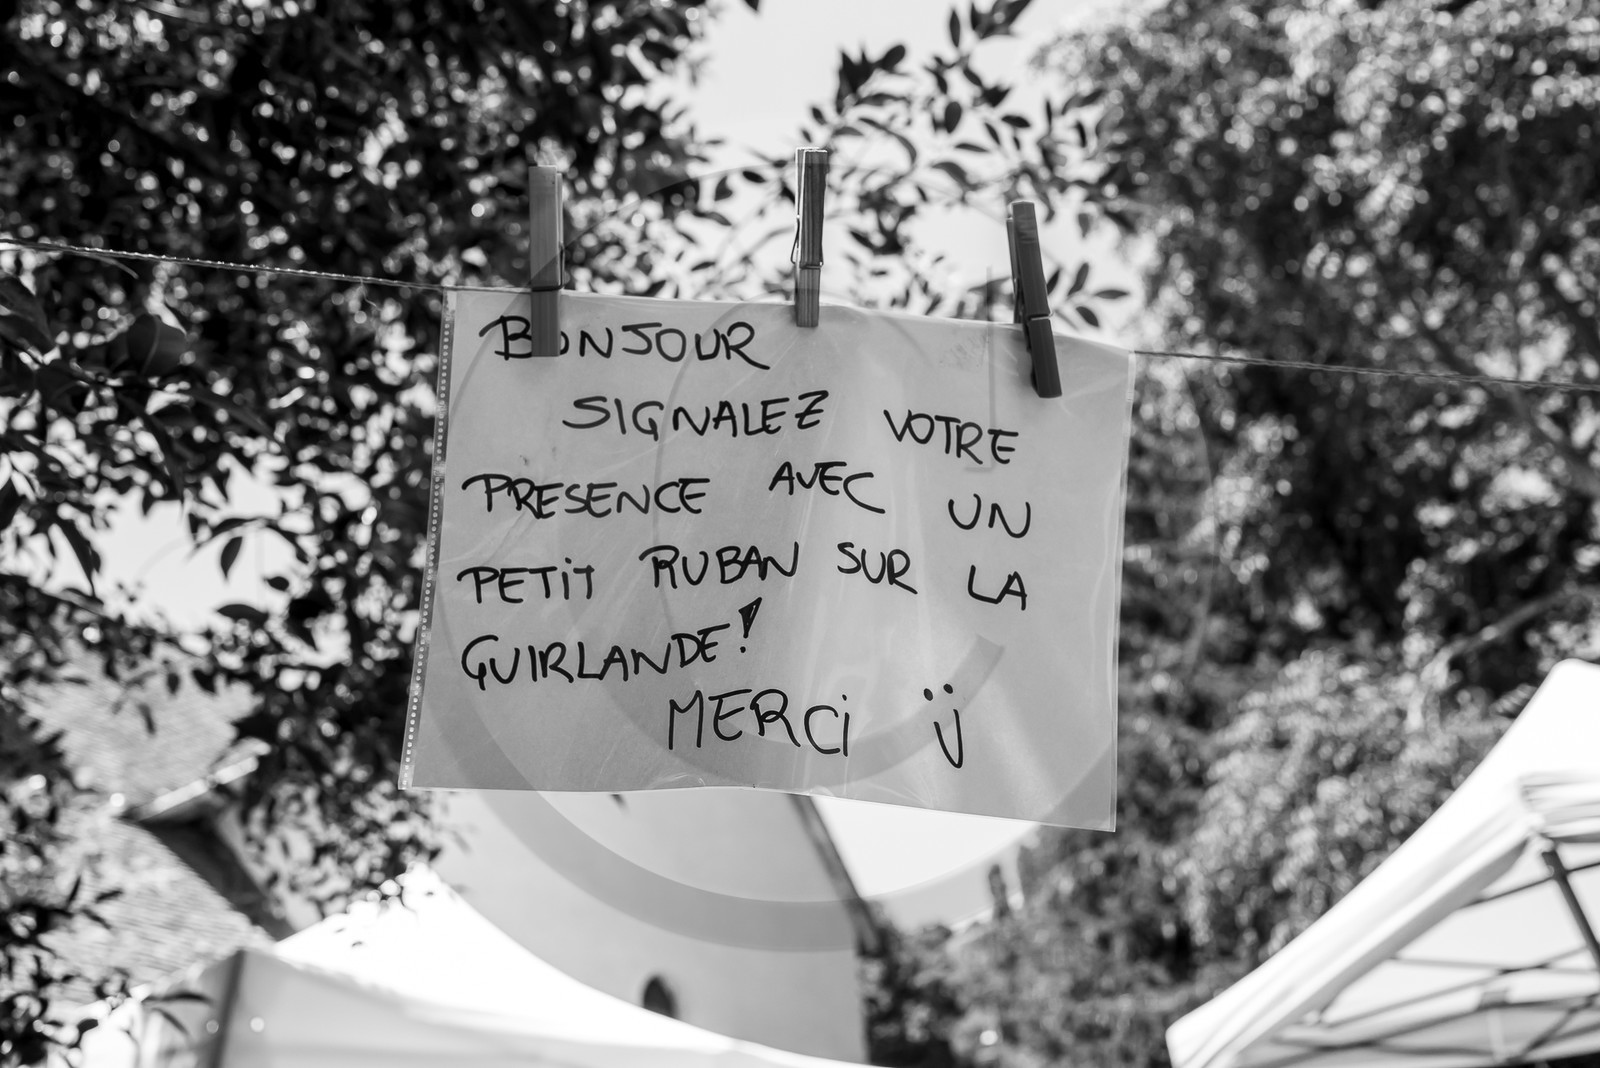 BONJOUR
SIGNALEZ VOTRE
PRESENCE AVEC UN
PETIT RUBAN SUR LA
GUIRLANDE!
MERCI